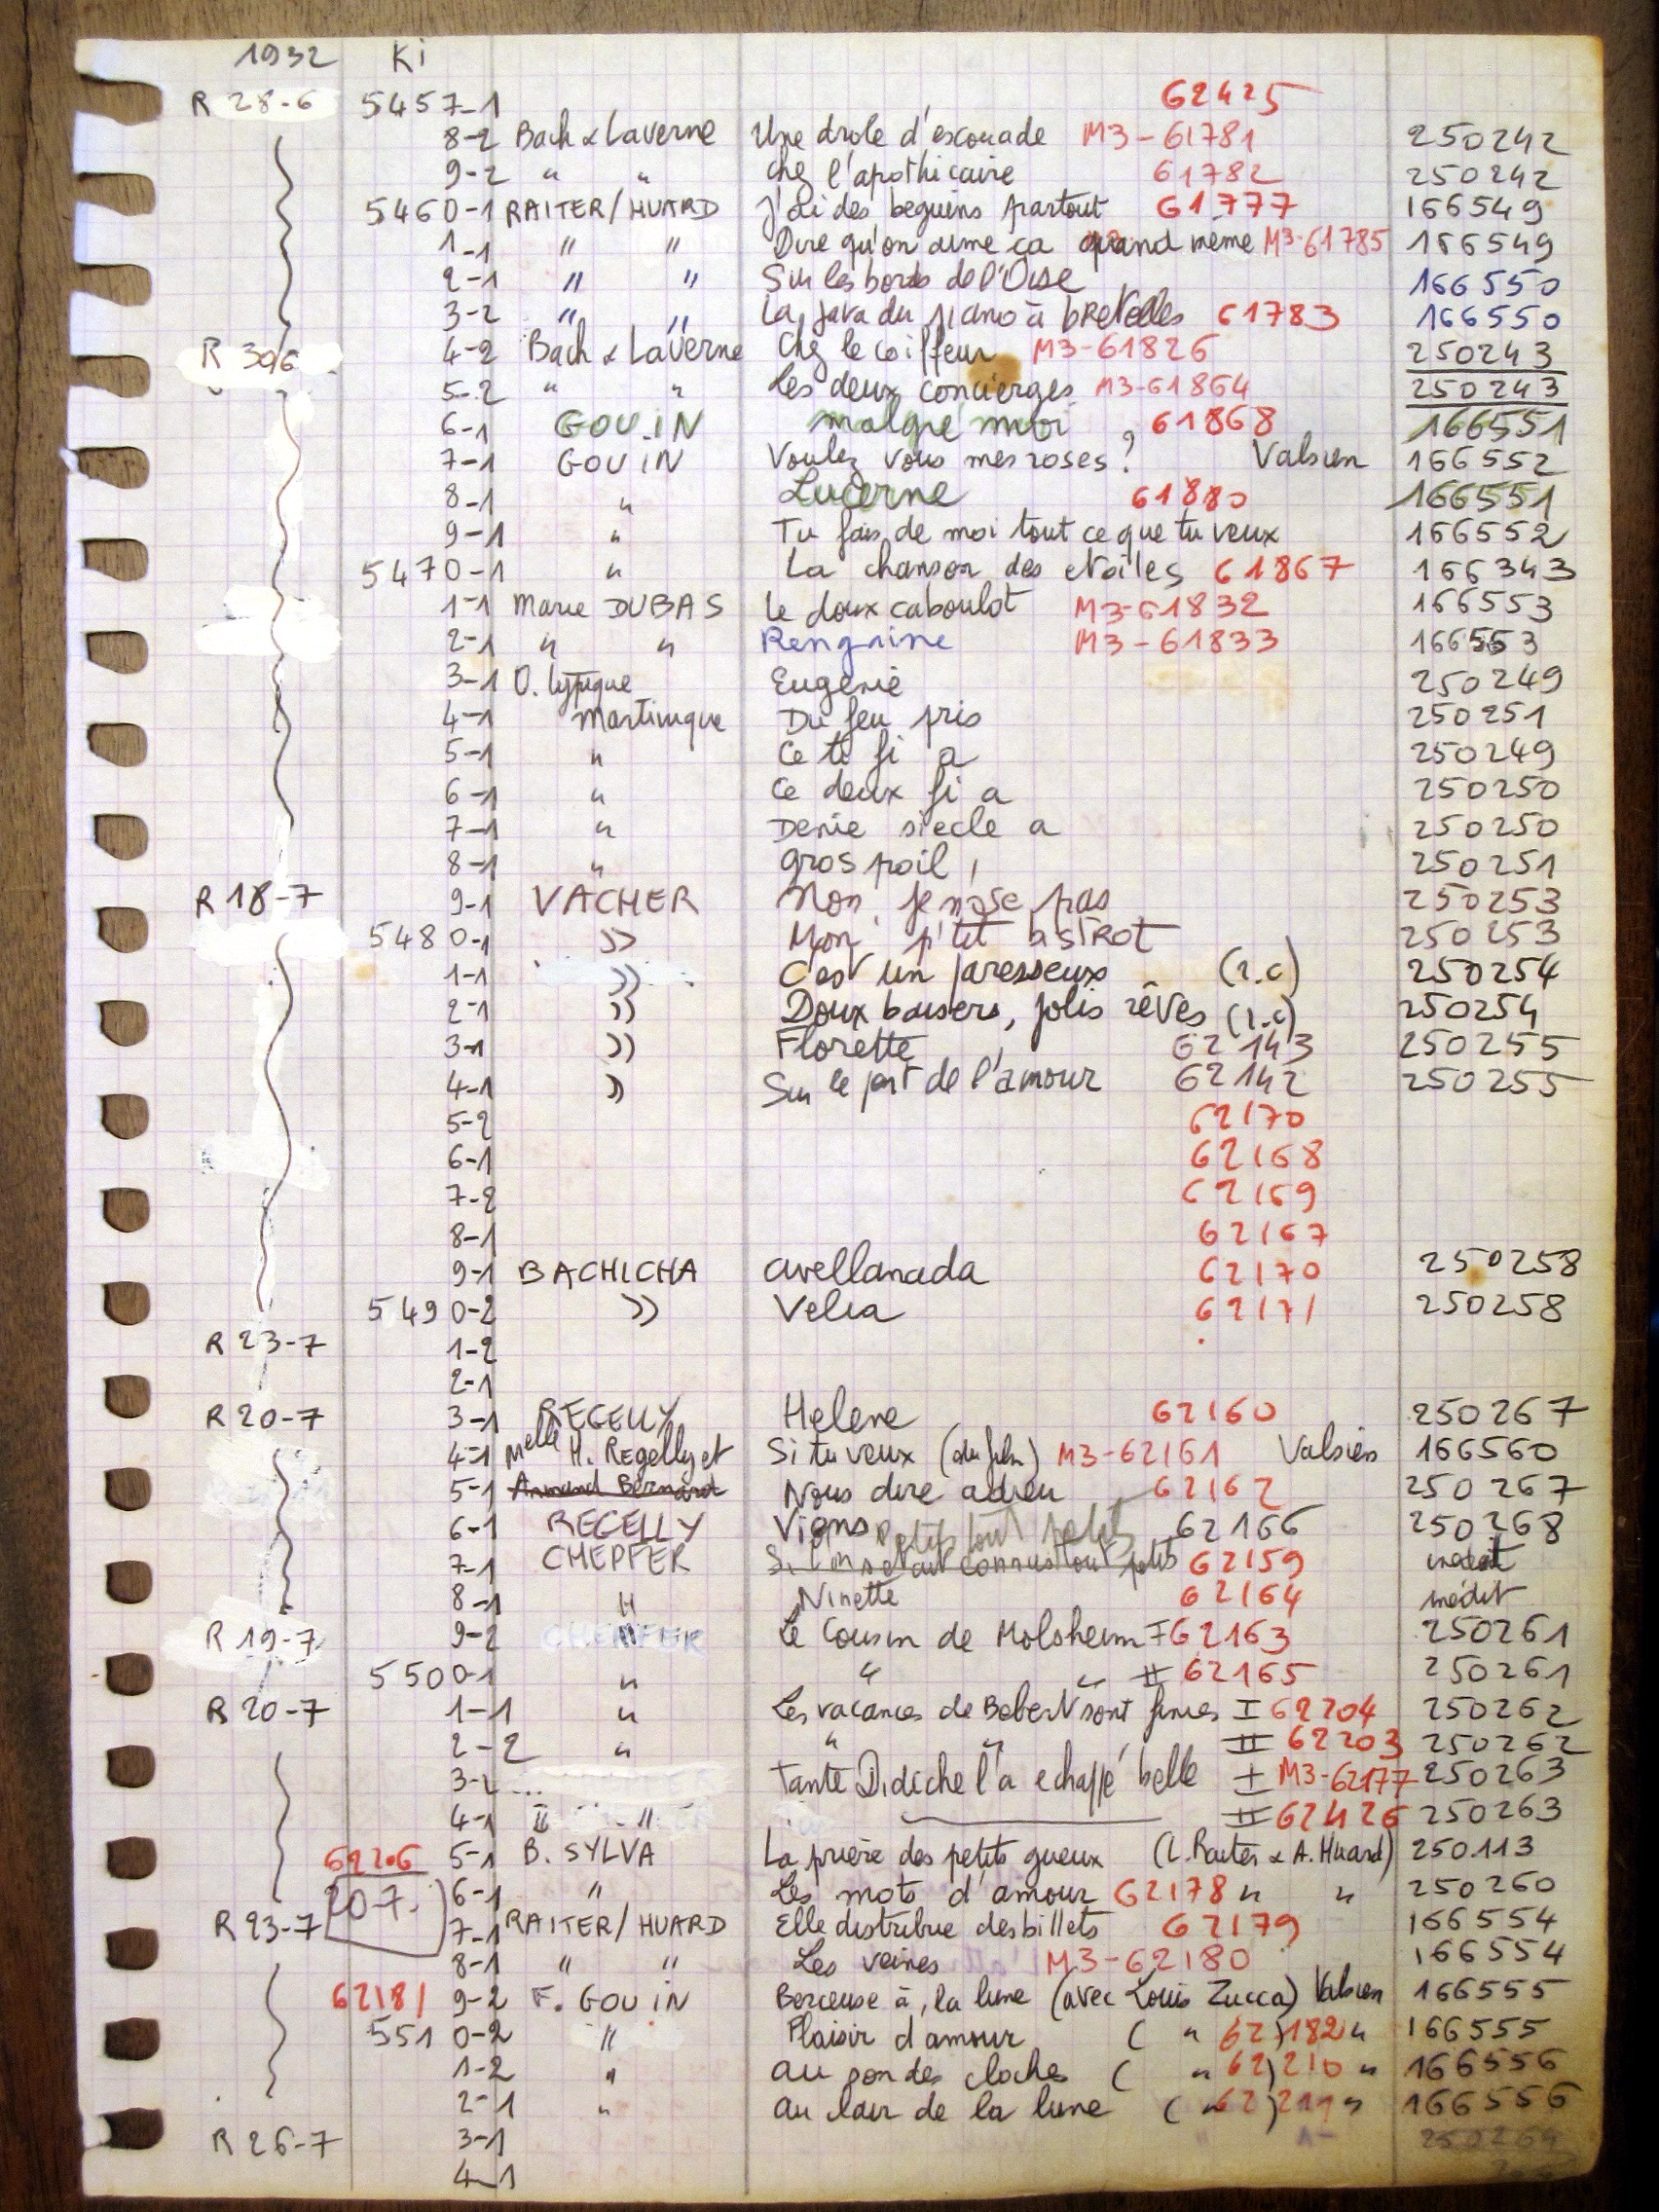 1932 Ki
R 28-6 5457-1 62425
8-2 Bach & Laverne Une drole d'escouade M3-61781 250242
9-2 " " chez l'apothicaire 61782 250242
5460-1 RAITER/HUARD J'ai des beguins partout 61777 166549
1-1 " " Dire qu'on aime ca quand même M3-61785 166549
2-1 " " Sur les bords de l'Oise 166550
3-2 " " La java du piano à bretelles 61783 166550
R 30/6 4-2 Bach & Laverne Chez le coiffeur M3-61826 250243
5-2 " " Les deux concierges M3-61864 250243
6-1 GOUIN malgré moi 61868 166551
7-1 GOUIN Voulez vous mes roses? Valsien 166552
8-1 " Lucerne 61880 166551
9-1 " Tu fais de moi tout ce que tu veux 166552
5470-1 " La chanson des etoiles 61867 166343
1-1 Marie DUBAS Le doux caboulot M3-61832 166553
2-1 " " Rengaine M3-61833 166553
3-1 O. typique Eugenie 250249
4-1 Martinique Du feu pris 250251
5-1 " Ce ti fi a 250249
6-1 " Ce deux fi a 250250
7-1 " Denie siecle a 250250
8-1 " Gros poil 250251
R 18-7 9-1 VACHER Non, je n'ose pas 250253
5480-1 » Mon p'tit bistrot 250253
1-1 » C'est un paresseux (r.c) 250254
2-1 » Doux baisers, jolis rêves (r.c) 250254
3-1 » Florette 62143 250255
4-1 » Sur le port de l'amour 62142 250255
5-2 62170
6-1 62168
7-2 62169
8-1 62167
9-1 BACHICHA avellanada 62170 250258
5490-2 » Velia 62171 250258
R 23-7 1-2
2-1
R 20-7 3-1 REGELLY Helene 62160 250267
4-1 Melle H. Regelly et Si tu veux (du film) M3-62161 Valsien 166560
5-1 Armand Bernard Nous dire adieu 62162 250267
6-1 REGELLY Vions petits tout petits 62166 250268
7-1 CHEPFER Si l'on s'etait connus tout petits 62159 inedit
8-1 " Ninette 62164 inédit
R 19-7 9-2 CHEPFER Le Cousin de Molsheim I 62163 250261
5500-1 " " " II 62165 250261
R 20-7 1-1 " Les vacances de Bebert sont finies I 62204 250262
2-2 " " " II 62203 250262
3-2 ... Tante Didiche l'a echappé belle I M3-62177 250263
4-1 " " II 62426 250263
62206 5-1 B. SYLVA La prière des petits gueux (L. Raiter & A. Huard) 250.113
20-7. 6-1 " Les mots d'amour 62178 " " 250260
R 23-7 7-1 RAITER/HUARD Elle distribue des billets 62179 166554
8-1 " " Les veines M3-62180 166554
62181 9-2 F. GOUIN Berceuse à la lune (avec Louis Zucca) Valsien 166555
5510-2 " Plaisir d'amour ( " 62)182 " 166555
1-2 " au son des cloches ( " 62)210 " 166556
2-1 " au clair de la lune ( " 62)211 " 166556
R 26-7 3-1 250269
4-1